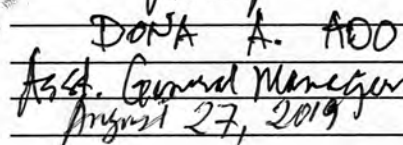 DONA A. ADO
Asst. General Manager
August 27, 2019